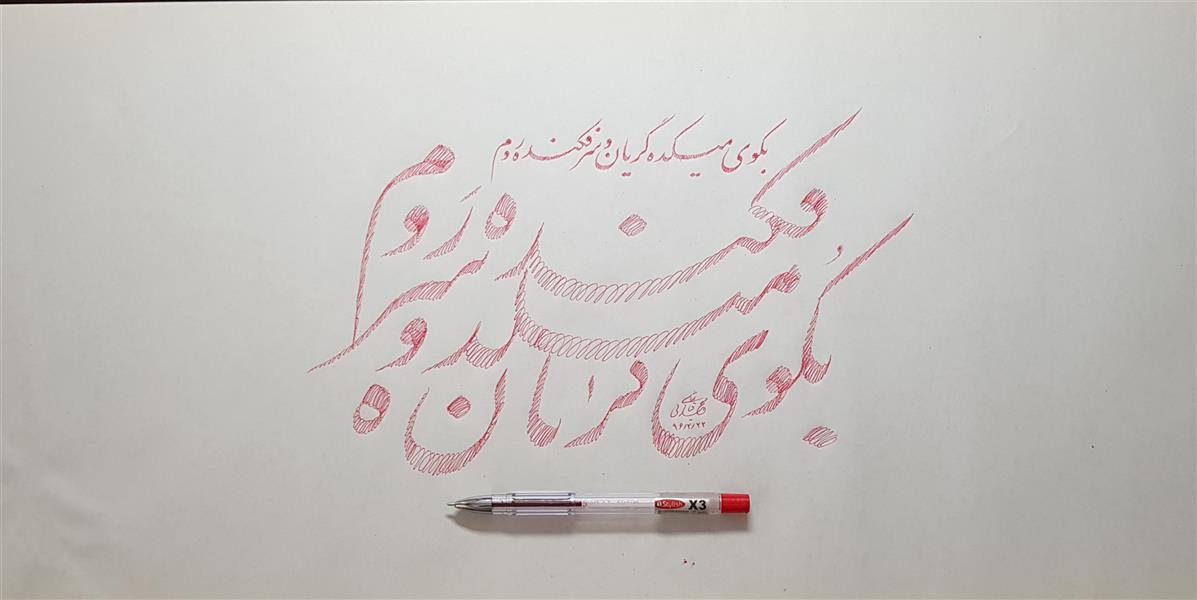 بکوی میکده گریان و سرفکنده روم
بکوی میکده گریان و سر فکنده رَوم
Stylish X3